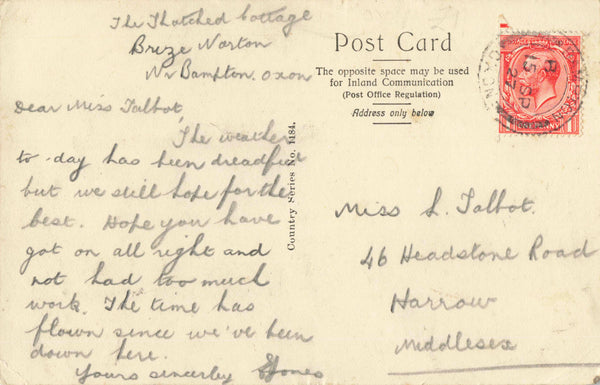 The Thatched Cottage
Brize Norton
Nr Bampton, Oxon
Dear Miss Talbot,
The weather
to-day has been dreadful
but we still hope for the
best. Hope you have
got on all right and
not had too much
work. The time has
flown since we've been
down here.
Yours sincerely EJones
Country Series No. 1484.
Post Card
The opposite space may be used
for Inland Communication
(Post Office Regulation)
Address only below
15 SP
27
Miss L. Talbot.
46 Headstone Road
Harrow
Middlesex